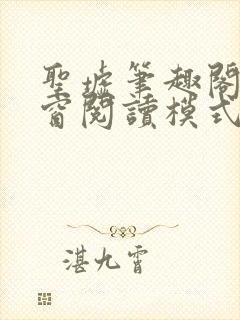 聖墟筆趣閣
窗閱讀模式
湛九霄